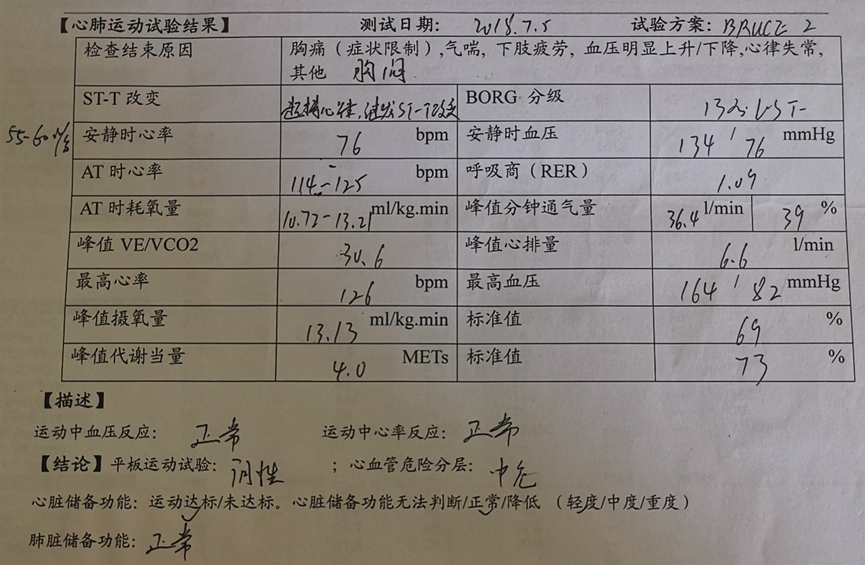 【心肺运动试验结果】 测试日期: 2018.7.5 试验方案: BRUCE 2
检查结束原因 胸痛（症状限制）,气喘, 下肢疲劳, 血压明显上升/下降,心律失常,
其他 胸闷
ST-T 改变 起搏心律,继发ST-T改变 BORG 分级 13
55-60%
安静时心率 76 bpm 安静时血压 134 / 76 mmHg
AT 时心率 114-125 bpm 呼吸商（RER） 1.09
AT 时耗氧量 10.72-13.21 ml/kg.min 峰值分钟通气量 36.4 l/min 39 %
峰值 VE/VCO2 30.6 峰值心排量 6.6 l/min
最高心率 126 bpm 最高血压 164 / 82 mmHg
峰值摄氧量 13.13 ml/kg.min 标准值 69 %
峰值代谢当量 4.0 METs 标准值 73 %
【描述】
运动中血压反应: 正常 运动中心率反应: 正常
【结论】平板运动试验: 阴性 ; 心血管危险分层: 中危
心脏储备功能: 运动达标/未达标。心脏储备功能无法判断/正常/降低 （轻度/中度/重度）
肺脏储备功能: 正常